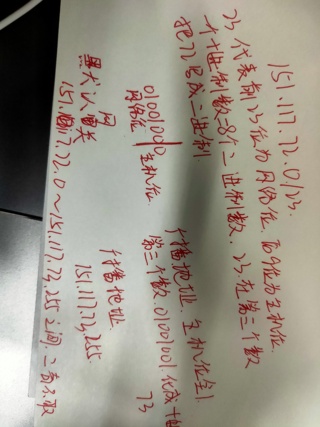 151.117.72.0/23.
23代表前23位为网络位. 后9位为主机位.
一个十进制数=8个二进制数. 23在第三个数
把72写成二进制
01001000
网络位 主机位.
广播地址. 主机位全1.
第三个数01001001化成十进
73
广播地址.
151.117.73.255.
默认网关
151.117.72.0~151.117.72.255之间. 二者不取